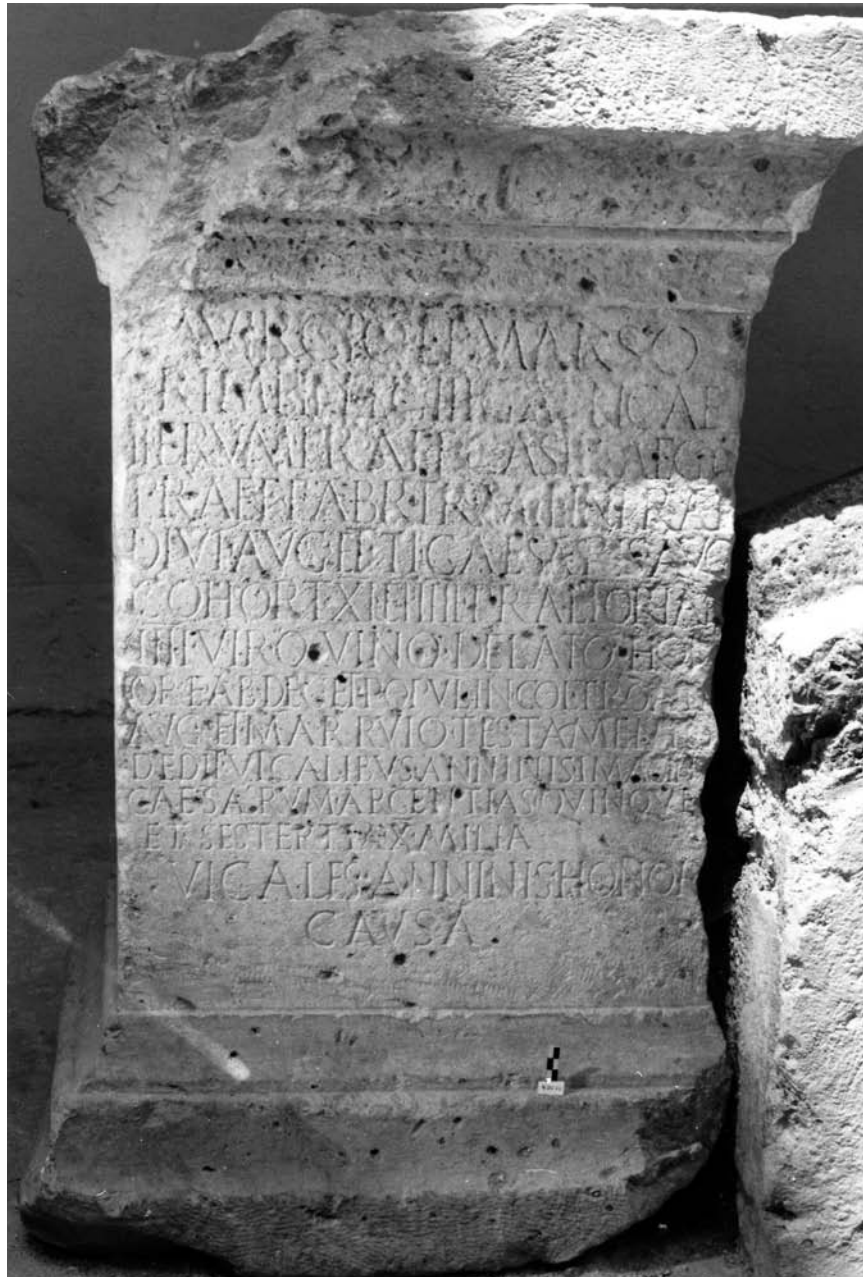 A VIRGIO L F MARSO
PRIM PIL LEG III GALLICAE
ITERVM PRAEF CAST AEGY
PRAEF FABR TR MIL IN PRAE
DIVI AVG ET TI CAESARIS AVG
COHORT XI ET IIII PRAETORIAR
IIII VIRO QVINQ DELATO HON
ORE AB DEC ET POPVL IN COL TROAD
AVG ET MARRVIO TESTAMENTO
DEDIT VICALIBVS ANNINIS IMAGIN
CAESARVM ARGENTIAS QVINQVE
ET SESTERTIA X MILIA
VICALES ANNINIS HONOR
CAVSA